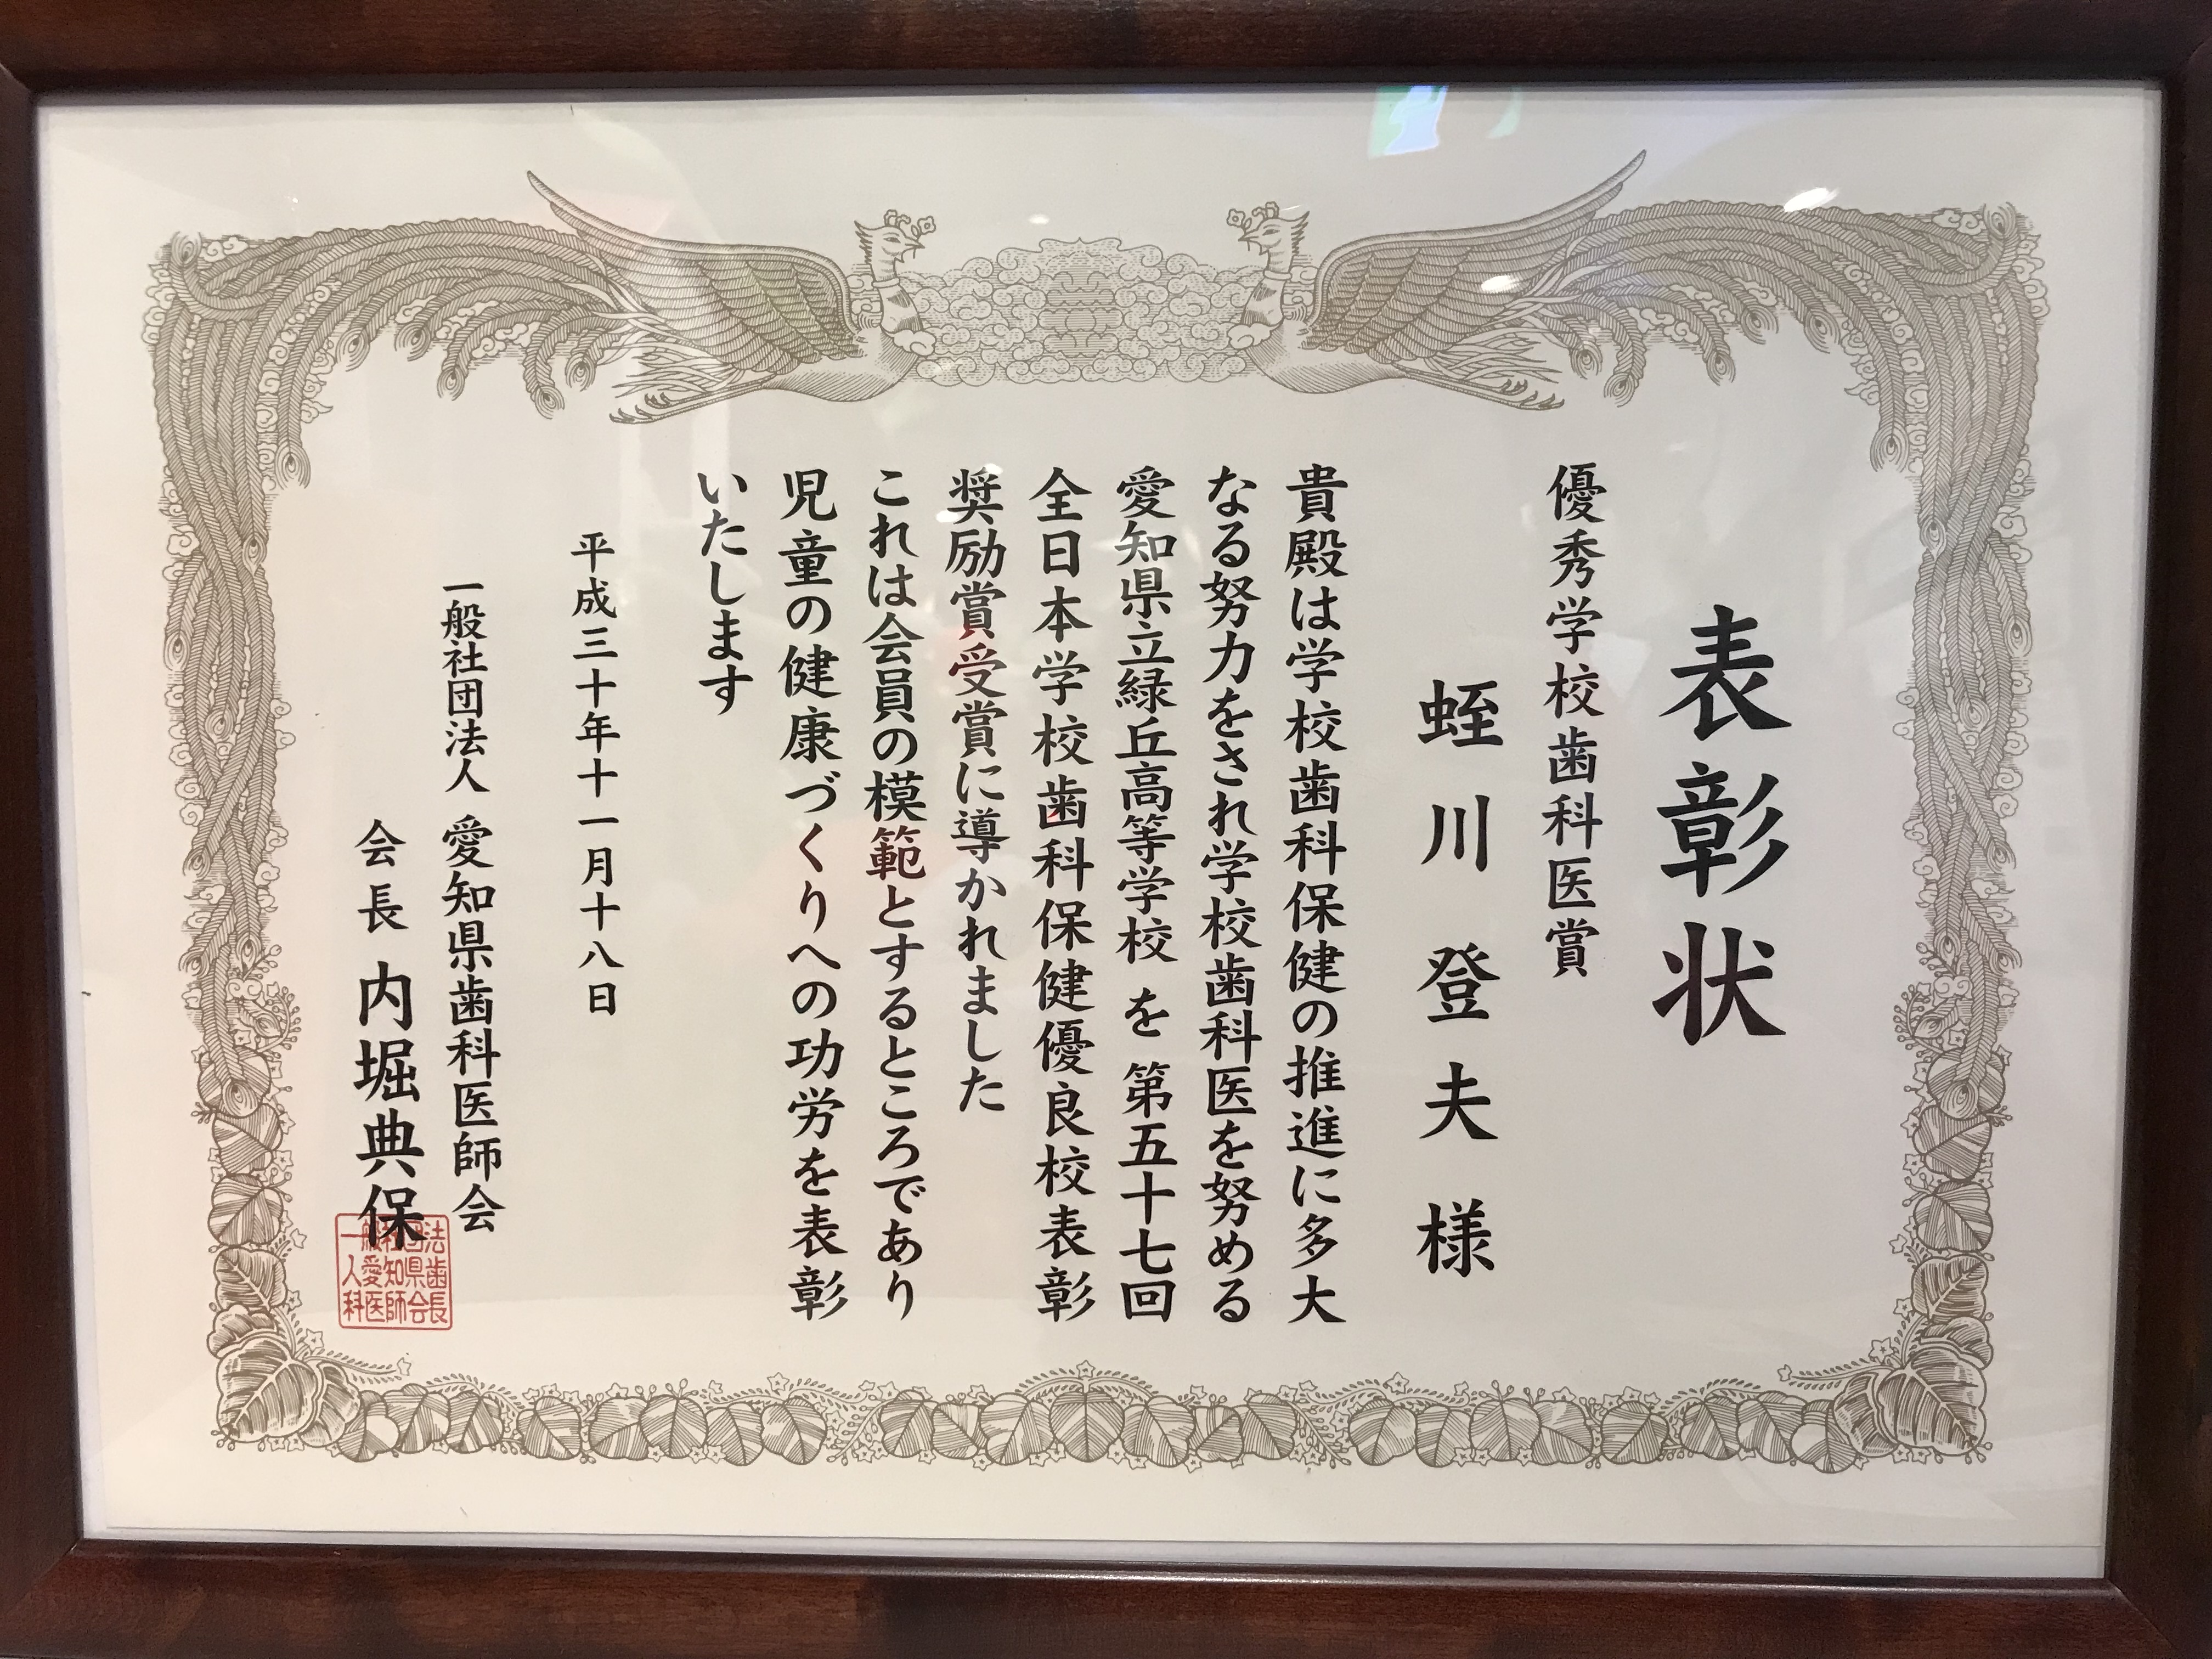 表彰状
優秀学校歯科医賞
蛭川登夫様
貴殿は学校歯科保健の推進に多大
なる努力をされ学校歯科医を努める
愛知県立緑丘高等学校を第五十七回
全日本学校歯科保健優良校表彰
奨励賞受賞に導かれました
これは会員の模範とするところであり
児童の健康づくりへの功労を表彰
いたします
平成三十年十一月十八日
一般社団法人 愛知県歯科医師会
会長 内堀典保
一般社団法
人愛知県歯
科医師会長